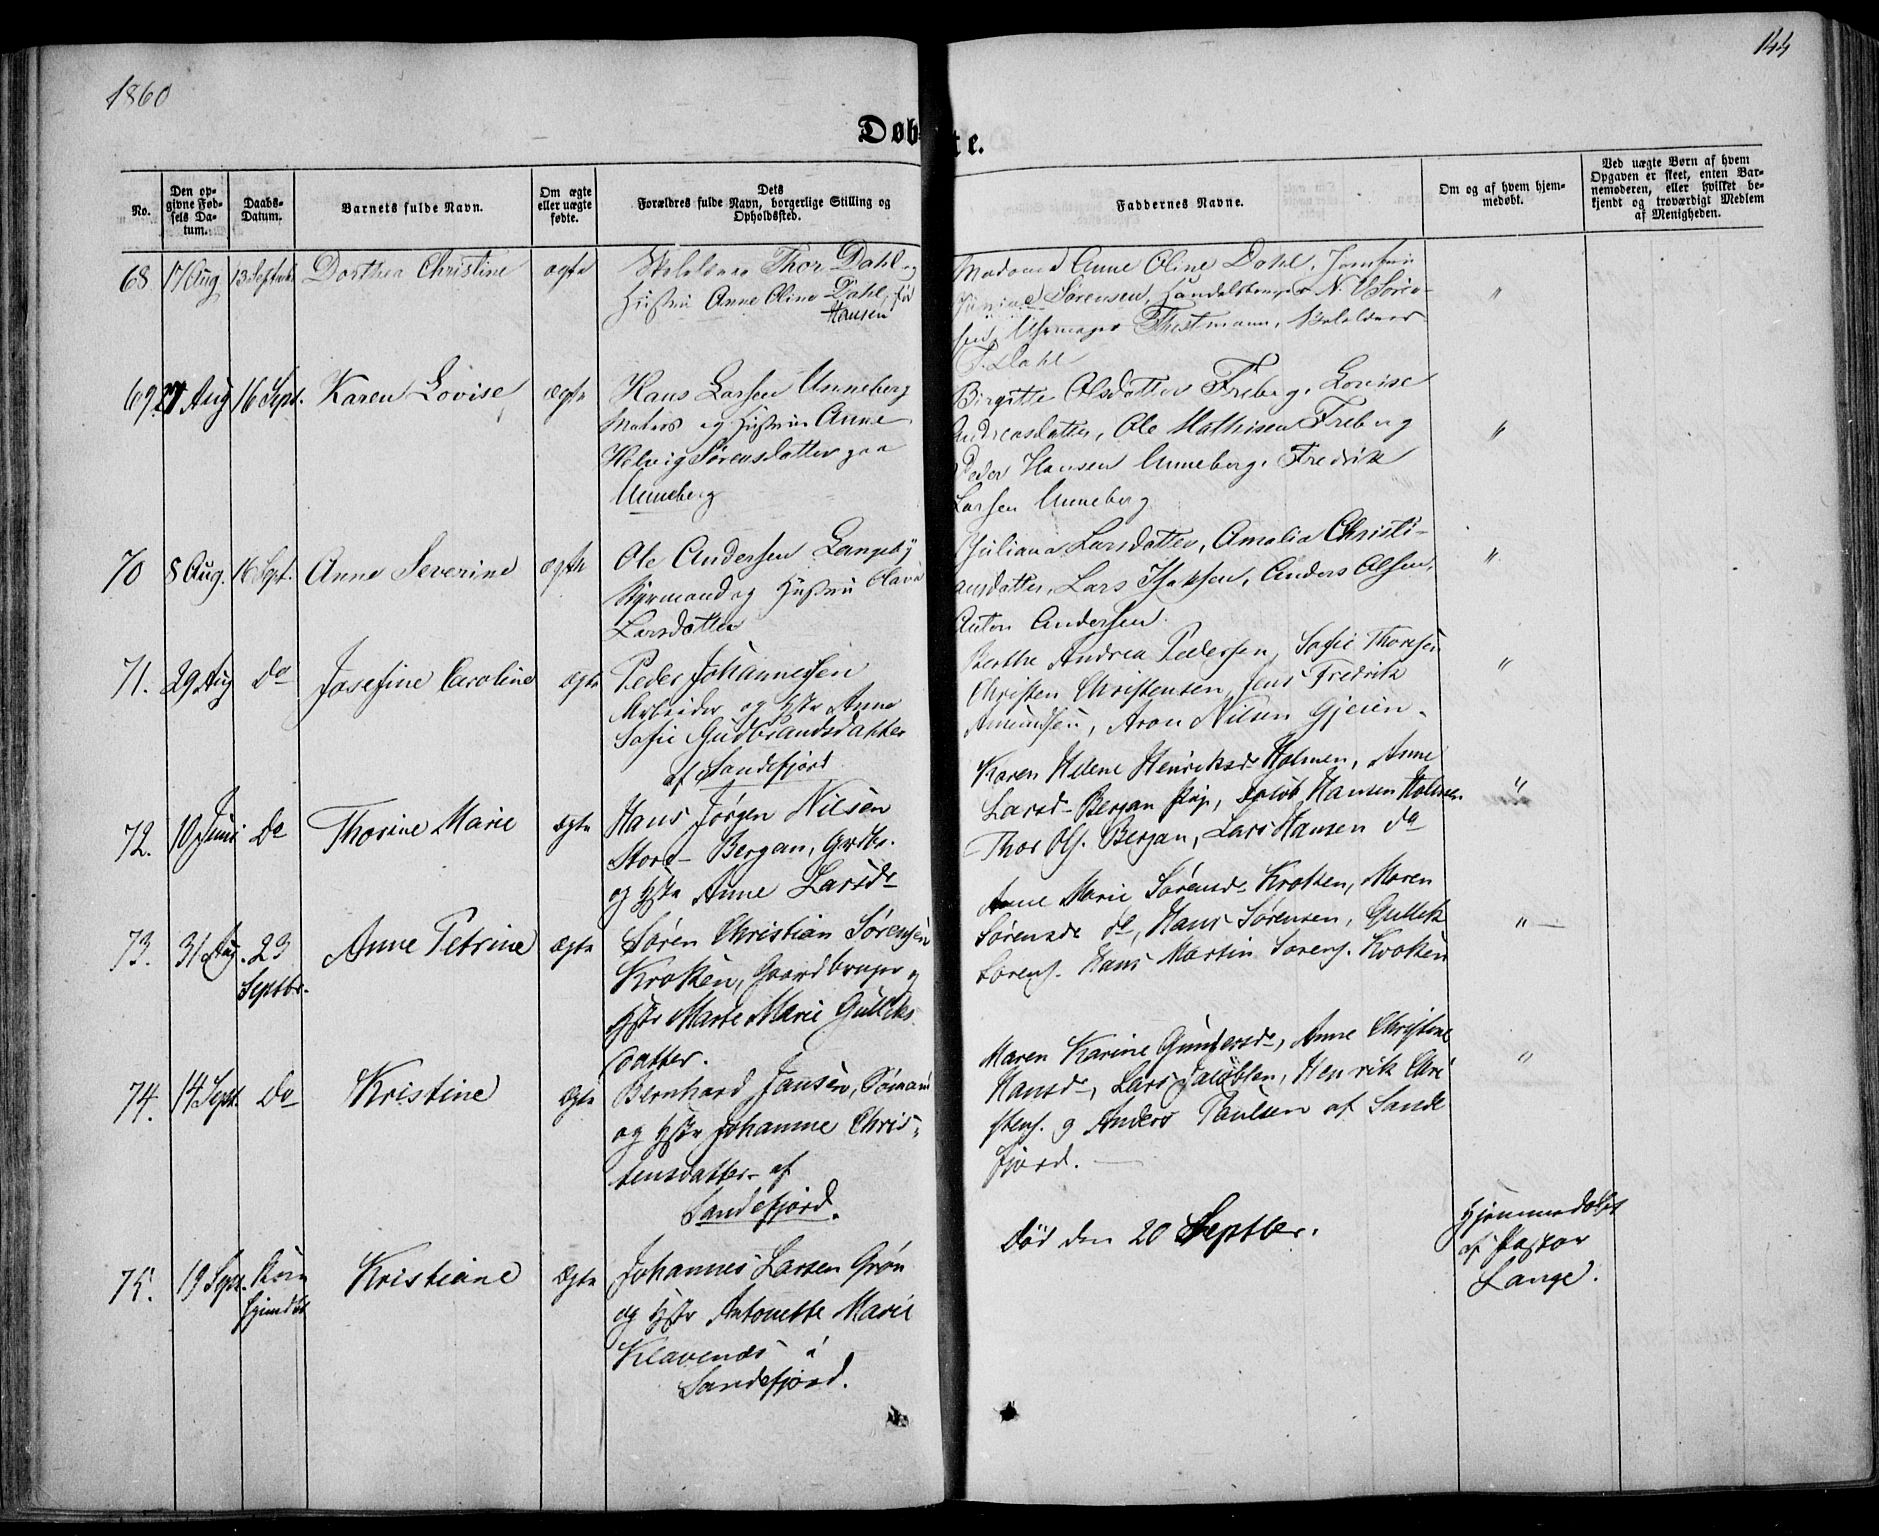 1860
144
Døbte.
No.
Den op-
givne Fød-
sels Da-
tum.
Daabs-
Datum.
Barnets fulde Navn.
Om ægte
eller uægte
fødte.
Dets
Forældres fulde Navn, borgerlige Stilling og
Opholdssted.
Faddernes Navne.
Om og af hvem hjem-
medøbt.
Ved uægte Børn af hvem
Opgaven er skeet, enten Bar-
nemoderen, eller hvilket be-
kjendt og troværdigt Medlem
af Menigheden.
68 17 Aug 13 Septbr Dorthea Christine ægte
Thor Dahl og
Hustru Anne Oline Dahl, fød
Hansen
Madame Anne Oline Dahl, Jomfru
Sørensen, Handelsborger N. V Søren-
sen, Uhrmager Thestmann,
T. Dahl
"
69. 27 Aug 16 Sept. Karen Lovise ægte
Hans Larsen Unneberg
Matros og Hustru Anne
Helvig Sørensdatter paa
Unneberg
Birgitte Olsdatter Freberg, Lovise
Andreasdatter, Ole Mathisen Freberg
Peder Hansen Unneberg, Fredrik
Larsen Unneberg
"
70 8 Aug. 16 Sept. Anne Severine ægte
Ole Andersen Langeby
Styrmand og Hustru Olava
Larsdatter
Juliana Larsdatter, Amalia Christi-
ansdatter, Lars Isaksen, Anders Olsen,
Anton Andersen.
"
71. 29 Aug Do Josefine Caroline ægte
Peder Johannessen
Arbeider og Hstr Anne
Sofie Gudbrandsdatter
af Sandefjord
Berthe Andrea Pedersen, Sofie Thoresen
Christen Christensen, Jens Fredrik
Amundsen, Aron Nilsen Gjeien.
"
72. 10 Juni Do Thorine Marie ægte
Hans Jørgen Nilsen
Store-Bergan, Grdbr.
og Hstr Anne Larsd-
Karen Helene Henriksd- Holmen, Anne
Larsd- Bergan Pige, Jakob Hansen Holmen
Thor Ols. Bergan, Lars Hansen do
"
73. 31 Aug. 23
Septbr. Anne Petrine ægte
Søren Christian Sørensen
Krokken, Gaardbruger og
Hstr Marte Marie Gulliks
datter.
Anne Marie Sørensd- Krokken, Maren
Sørensd- do, Hans Sørensen, Gullik
Sørens. Hans Martin Sørens. Krokken
"
74. 14 Sept. Do Kristine ægte
Bernhard Jansen, Sømand
og Hstr Johanne Chris-
tensdatter af
Sandefjord.
Maren Karine Gundersd-, Anne Christine
Hansd-, Lars Jakobsen, Henrik Chri
stens. og Anders Paulsen af Sande
fjord.
"
75. 19 Sept. Kristiane ægte
Johannes Larsen Grøn
og Hstr Antonette Marie
Klavenæs i
Sandefjord.
Død den 20 Septbr.
Hjemmedøbt
af Pastor
Lange.